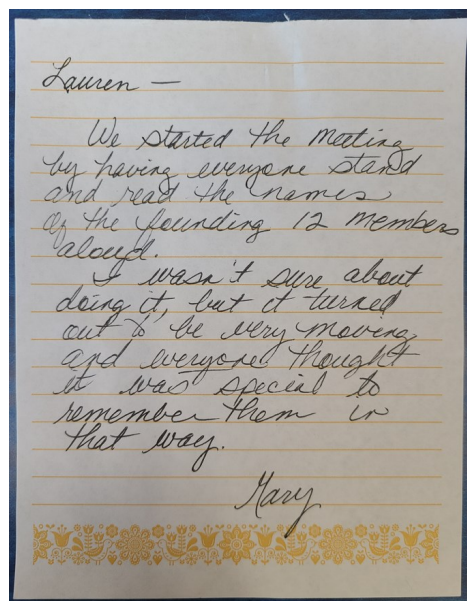 Lauren —
We started the meeting
by having everyone stand
and read the names
of the founding 12 members
aloud.
I wasn't sure about
doing it, but it turned
out to be very moving
and everyone thought
it was special to
remember them in
that way.
Mary